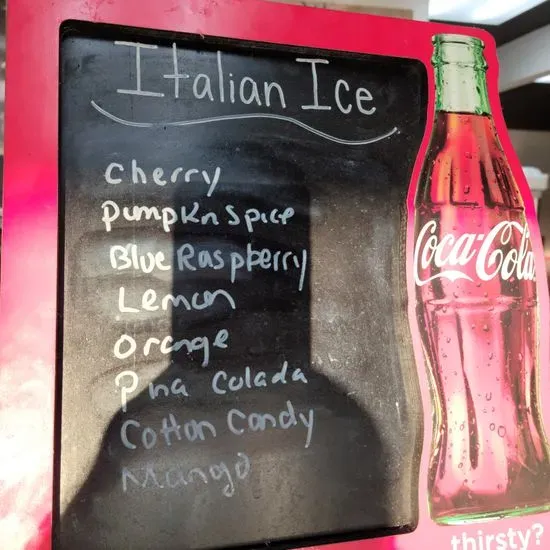 Italian Ice
Cherry
Pumpkn Spice
Blue Raspberry
Lemon
Orange
Pna Colada
Cotton Candy
Mango
Coca-Cola
thirsty?